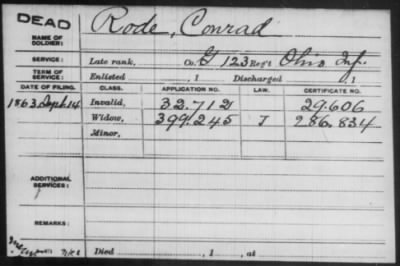 DEAD
NAME OF SOLDIER: Rode, Conrad
SERVICE: Late rank, Co. G 123 Reg't Ohio Inf.
TERM OF SERVICE: Enlisted , 1 Discharged , 1
DATE OF FILING. CLASS. APPLICATION NO. LAW. CERTIFICATE NO.
1863 Sept 14 Invalid, 32.712 29.606
Widow, 399.245 J 286.834
Minor,
ADDITIONAL SERVICES:
REMARKS:
Died , 1 , at